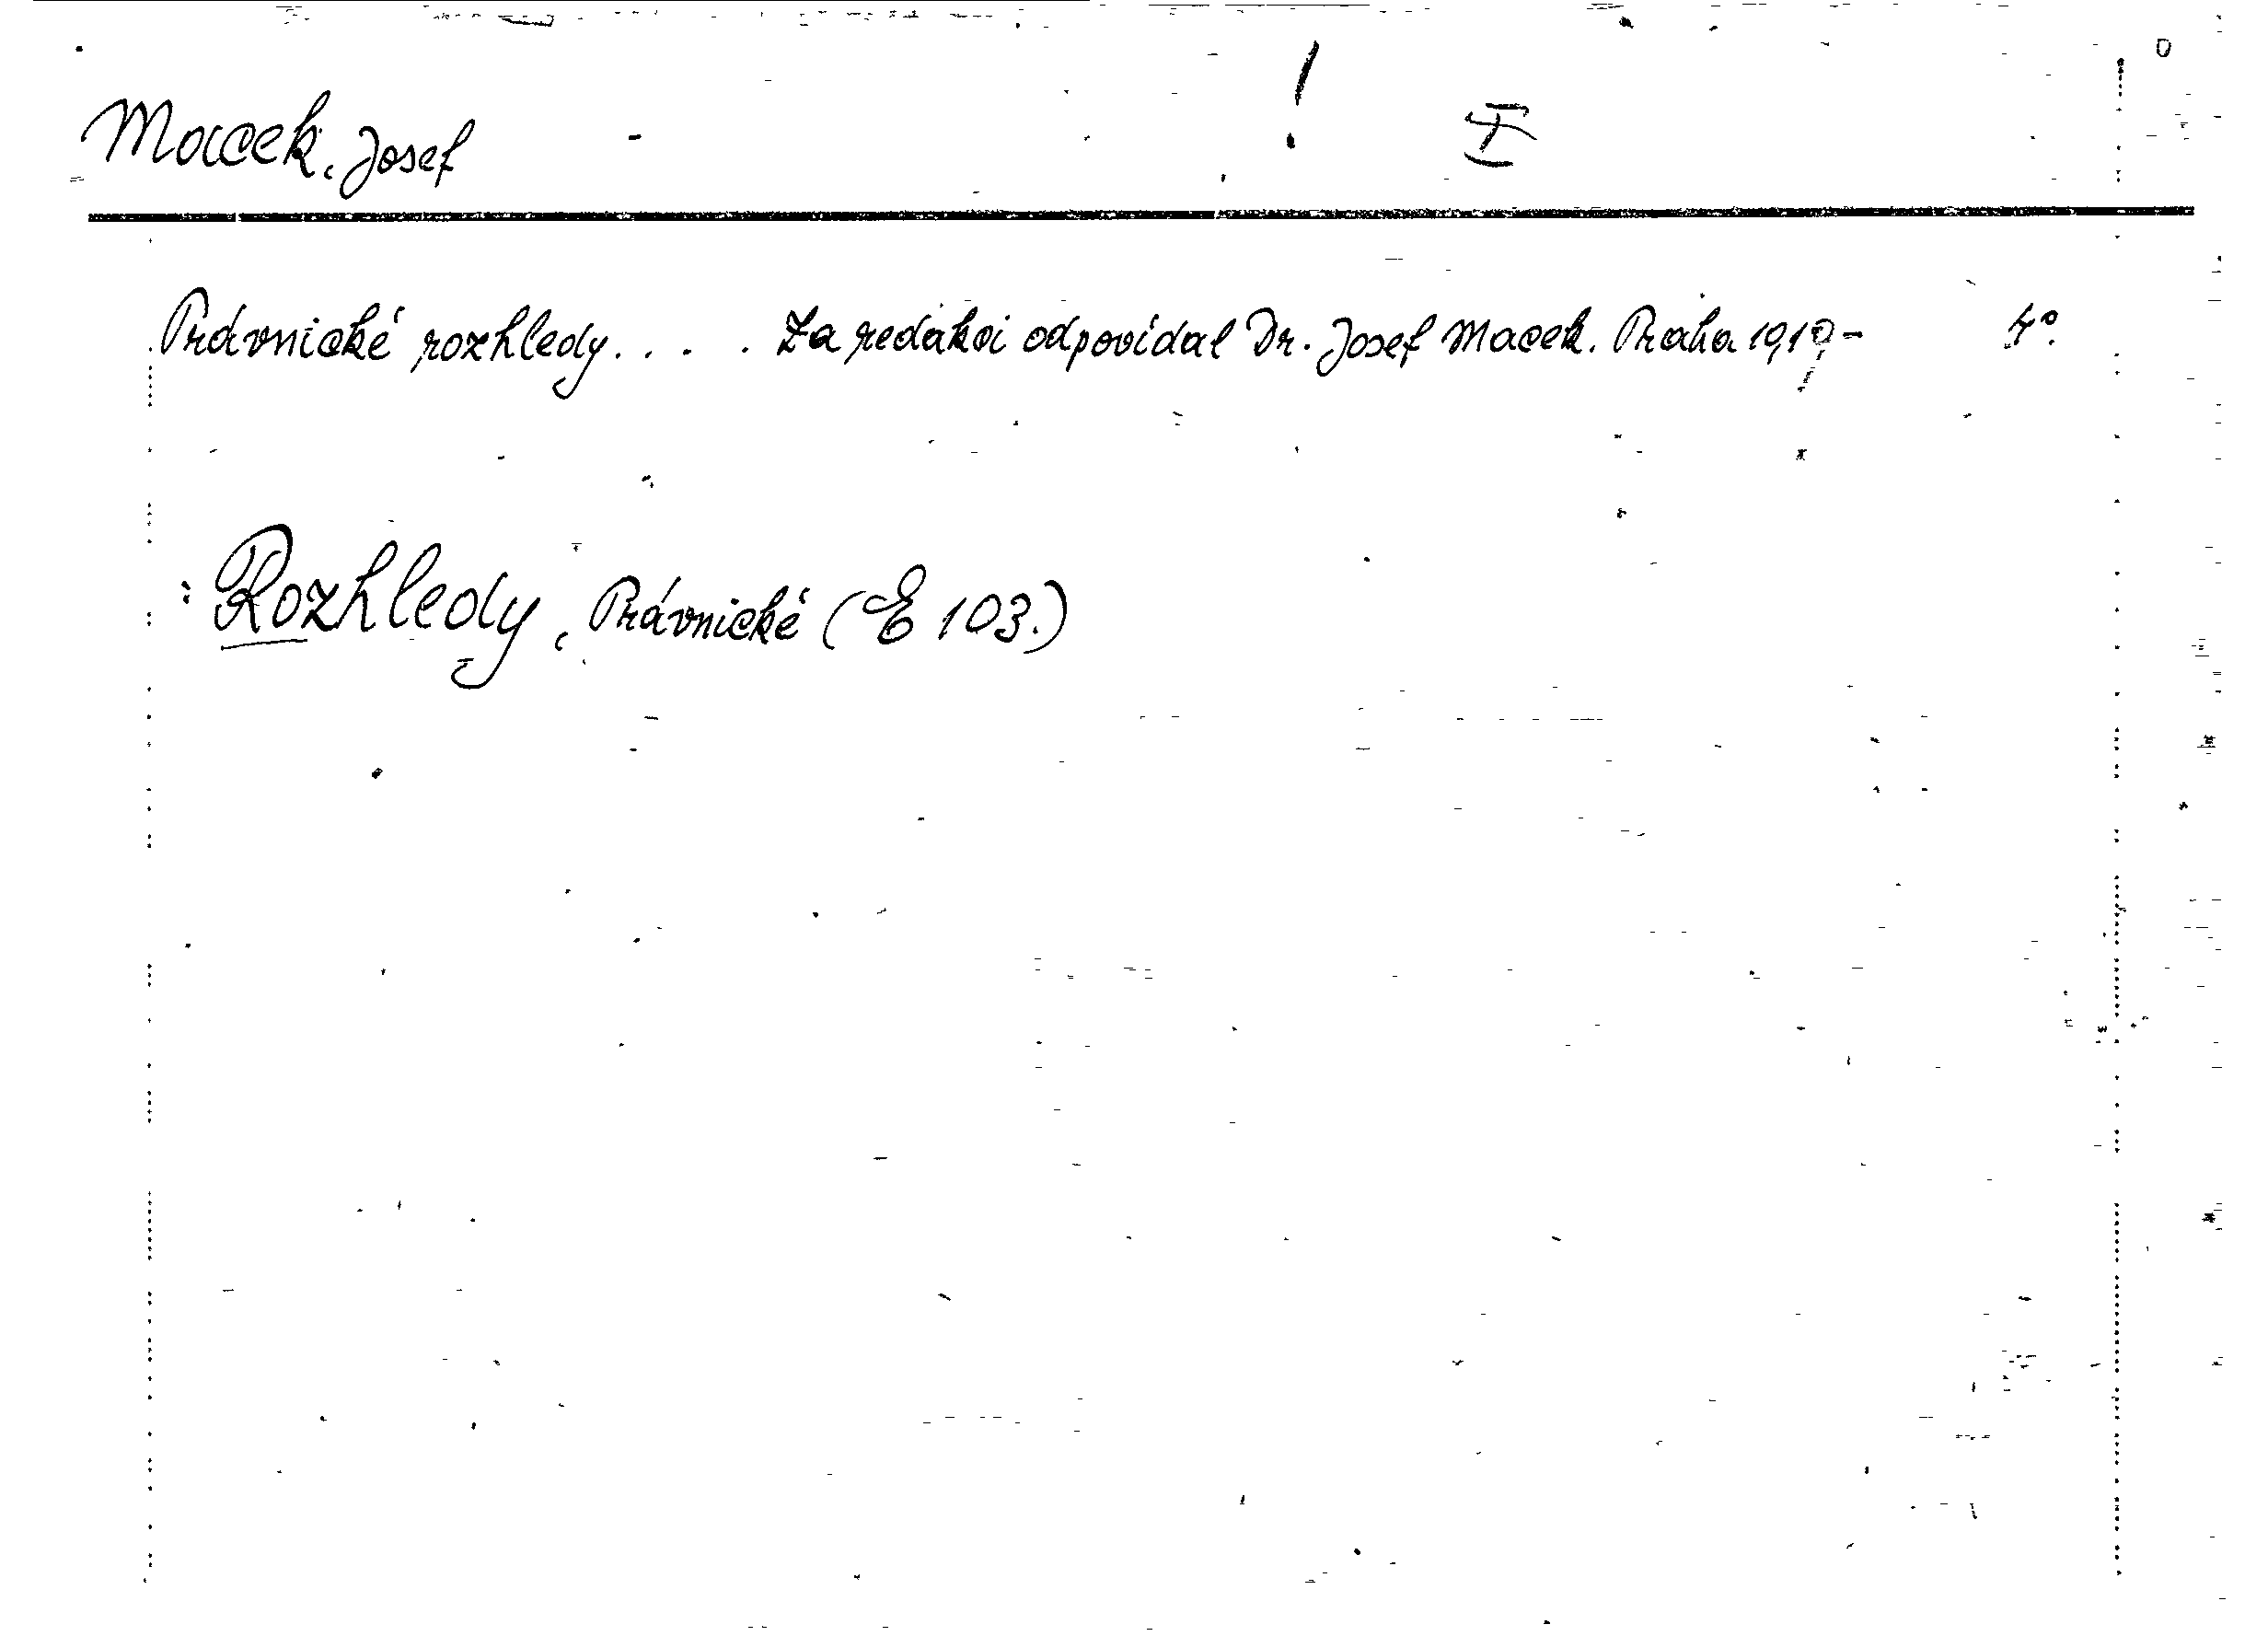 Macek, Josef ! I
Právnické rozhledy. . . . . Za redakci odpovídal Dr. Josef Macek. Praha 1919- 4°.
: Rozhledy, Právnické (E 103.)